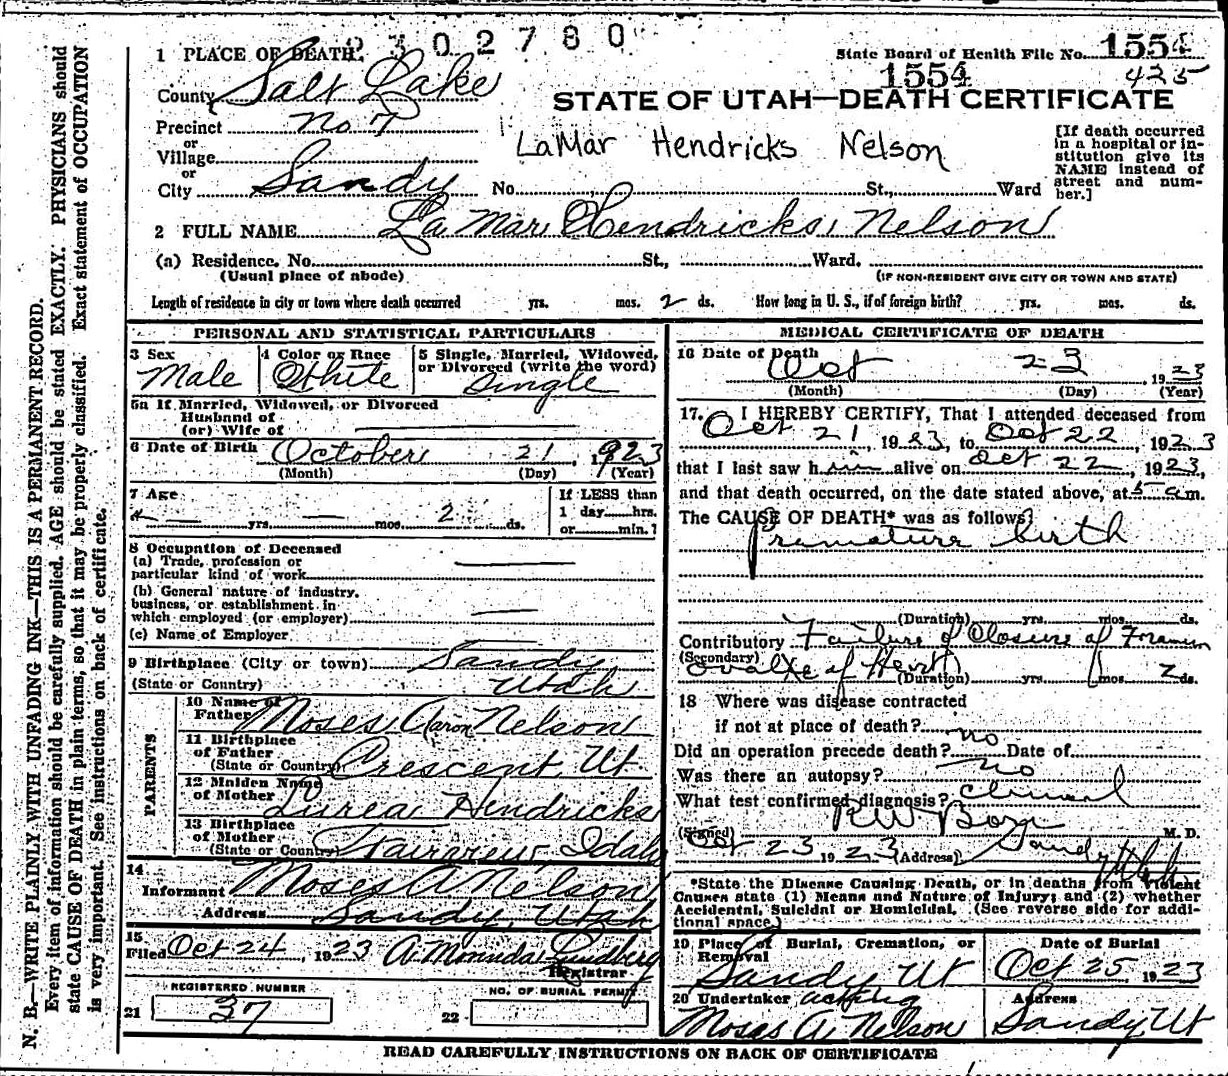 2302780
1 PLACE OF DEATH.
State Board of Health File No. 1554
1554 425
County Salt Lake
STATE OF UTAH—DEATH CERTIFICATE
Precinct No 7
or
Village
or
City Sandy No. St., Ward
LaMar Hendricks Nelson
[If death occurred
in a hospital or in-
stitution give its
NAME instead of
street and num-
ber.]
2 FULL NAME La Mar Hendricks Nelson
(a) Residence. No. St., Ward.
(Usual place of abode) (IF NON-RESIDENT GIVE CITY OR TOWN AND STATE)
Length of residence in city or town where death occurred yrs. mos. 2 ds. How long in U. S., if of foreign birth? yrs. mos. ds.
PERSONAL AND STATISTICAL PARTICULARS
3 Sex
Male
4 Color or Race
White
5 Single, Married, Widowed,
or Divorced (write the word)
Single
5a If Married, Widowed, or Divorced
Husband of
(or) Wife of
6 Date of Birth October 21, 1923
(Month) (Day) (Year)
7 Age
— yrs. — mos. 2 ds.
If LESS than
1 day hrs.
or min.?
8 Occupation of Deceased
(a) Trade, profession or
particular kind of work
(b) General nature of industry,
business, or establishment in
which employed (or employer)
(c) Name of Employer
9 Birthplace (City or town) Sandy
(State or Country) Utah
PARENTS
10 Name of
Father Moses Aaron Nelson
11 Birthplace
of Father
(State or Country) Crescent Ut
12 Maiden Name
of Mother Lurea Hendricks
13 Birthplace
of Mother
(State or Country) Fairview, Idaho
14
Informant Moses A Nelson
Address Sandy, Utah
15
Filed Oct 24, 1923 A. Lundberg
Registrar
REGISTERED NUMBER
21 37
NO. OF BURIAL PERMIT
22
MEDICAL CERTIFICATE OF DEATH
16 Date of Death
Oct 23, 1923
(Month) (Day) (Year)
17. I HEREBY CERTIFY, That I attended deceased from
Oct 21, 1923, to Oct 22, 1923
that I last saw him alive on Oct 22, 1923,
and that death occurred, on the date stated above, at 5 am.
The CAUSE OF DEATH* was as follows:
Premature birth
(Duration) yrs. mos. ds.
Contributory Failure of Closure of Foramen
(Secondary) ovalxe of Heart
(Duration) yrs. mos. 2 ds.
18 Where was disease contracted
if not at place of death?
Did an operation precede death? no Date of
Was there an autopsy? no
What test confirmed diagnosis? clinical
(Signed) R W M. D.
Oct 23 1923 (Address) Sandy Utah
*State the Disease Causing Death, or in deaths from Violent
Causes state (1) Means and Nature of Injury; and (2) whether
Accidental, Suicidal or Homicidal. (See reverse side for addi-
tional space.)
19 Place of Burial, Cremation, or
Removal
Sandy Ut
Date of Burial
Oct 25, 1923
20 Undertaker acting
Moses A. Nelson
Address
Sandy Ut
READ CAREFULLY INSTRUCTIONS ON BACK OF CERTIFICATE
N. B.—WRITE PLAINLY WITH UNFADING INK—THIS IS A PERMANENT RECORD.
Every item of information should be carefully supplied. AGE should be stated EXACTLY. PHYSICIANS should
state CAUSE OF DEATH in plain terms, so that it may be properly classified. Exact statement of OCCUPATION
is very important. See instructions on back of certificate.